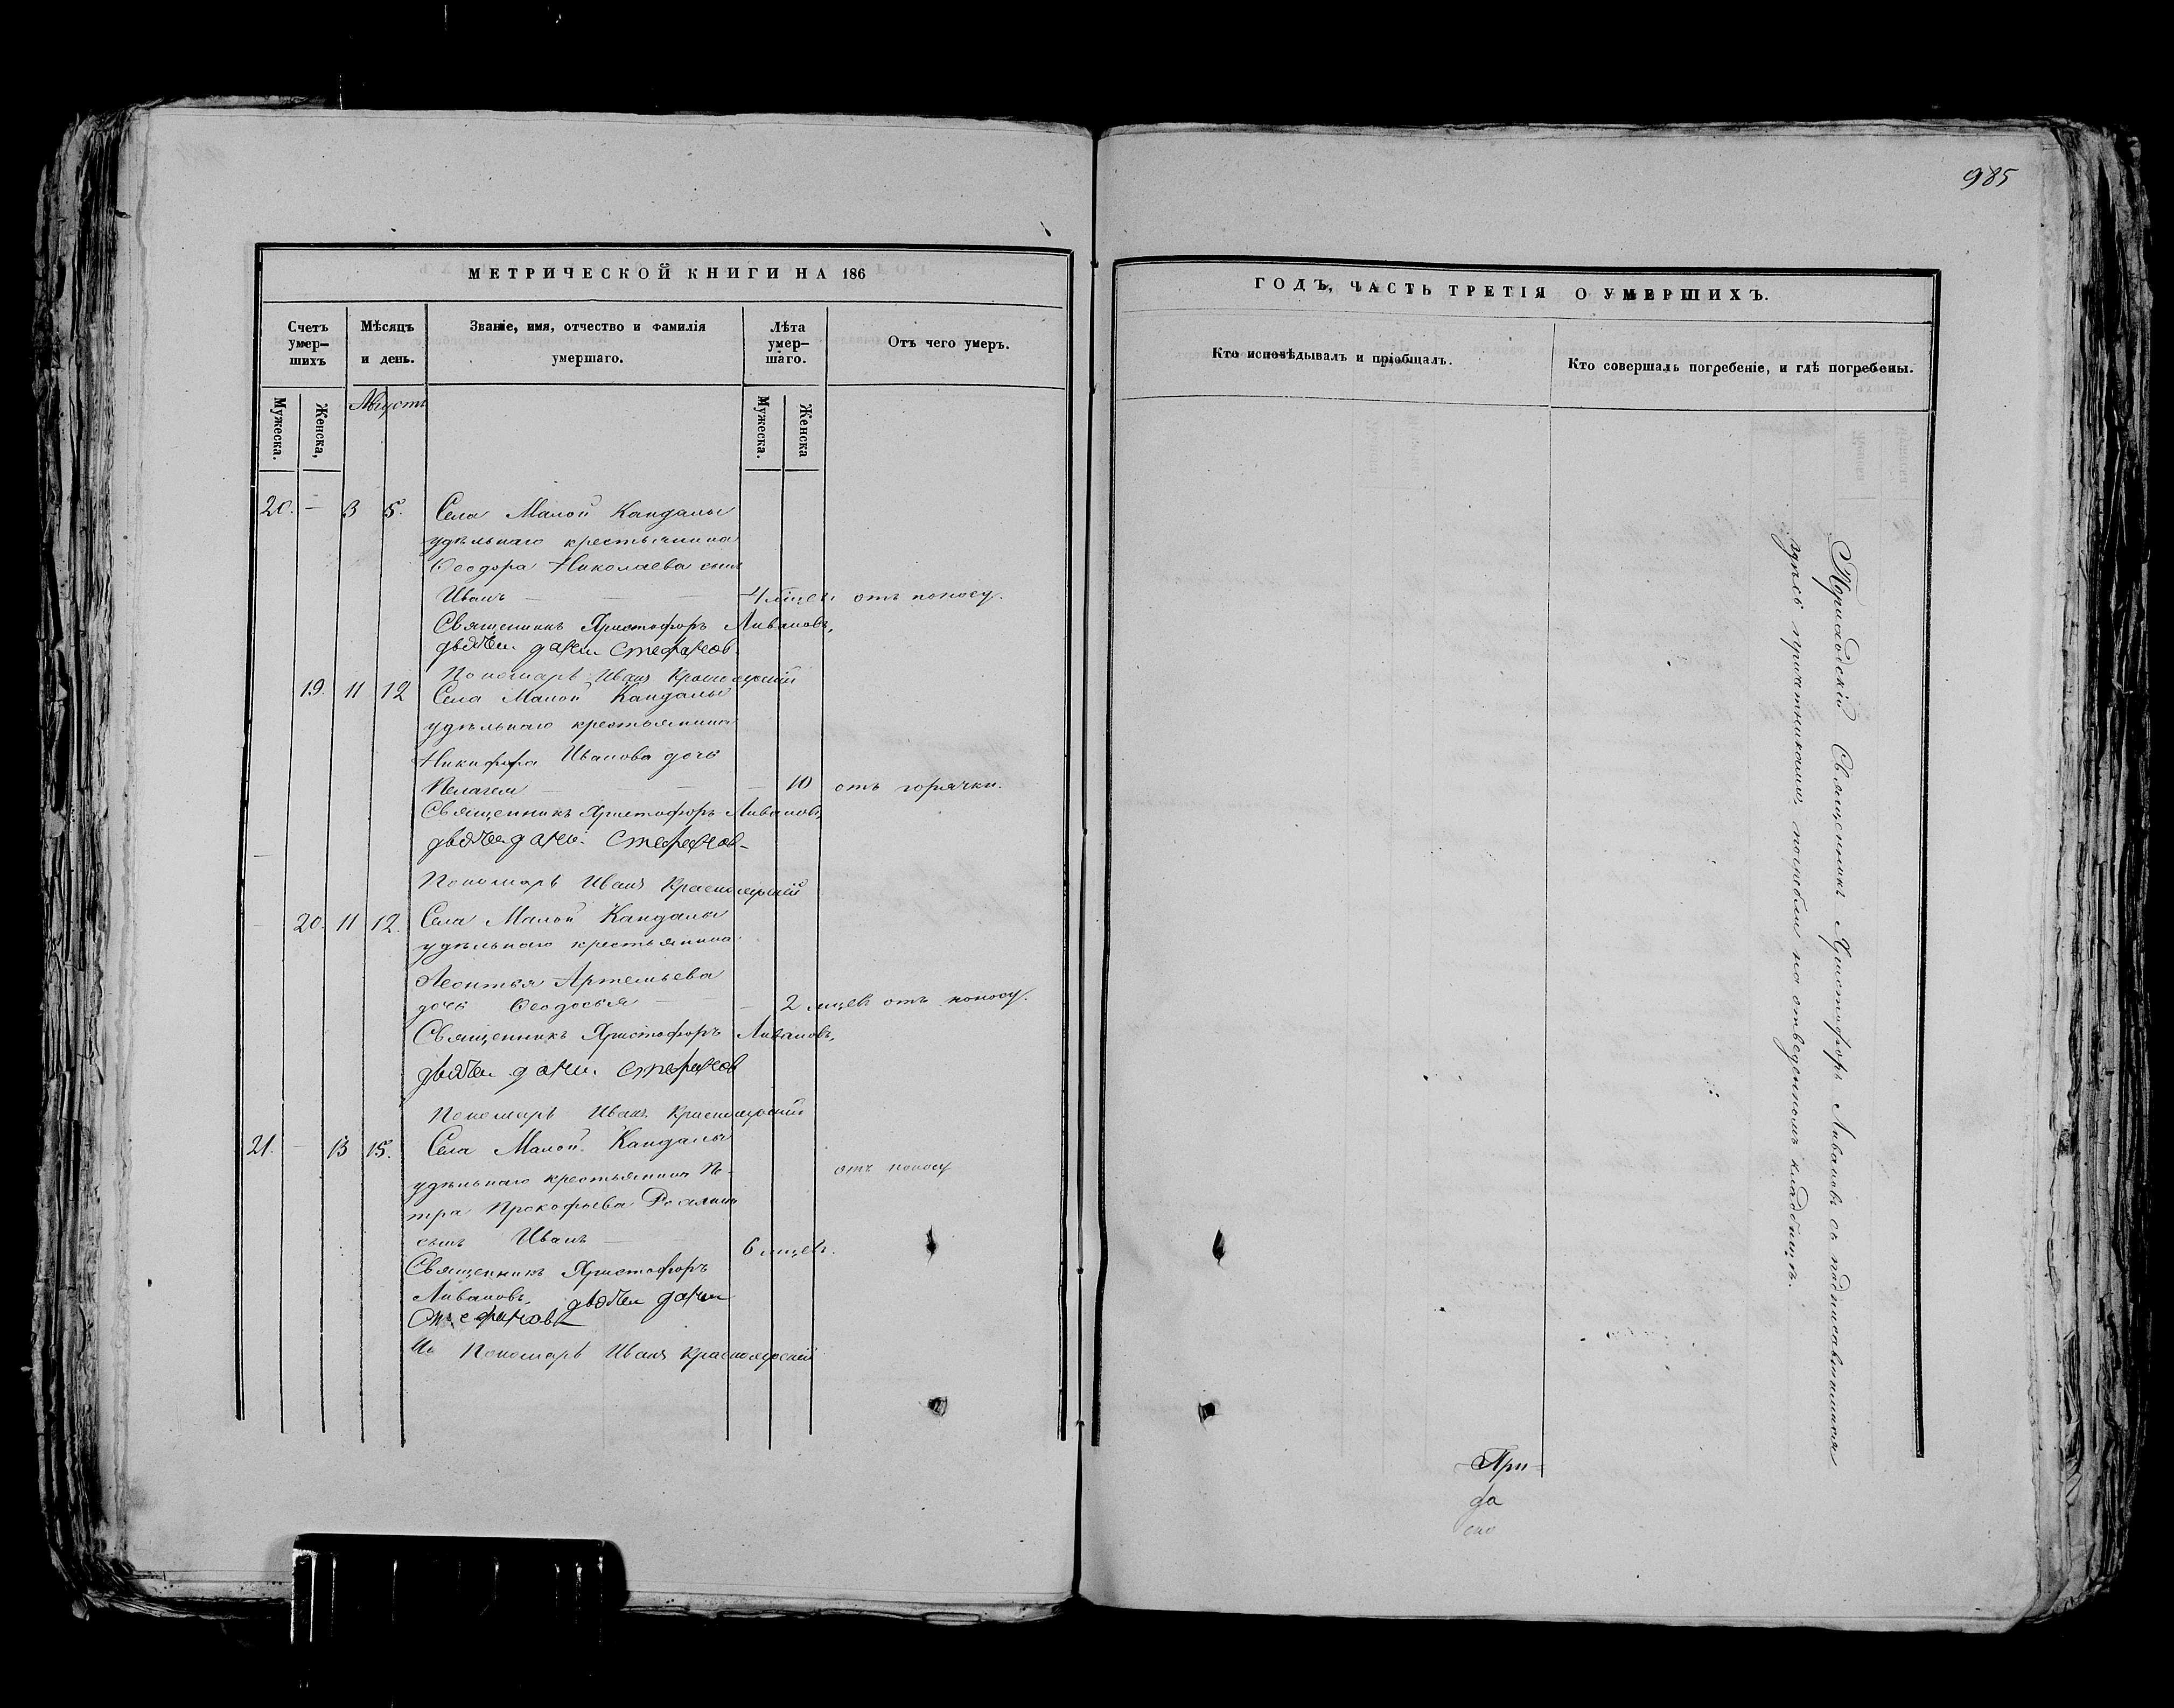 985
МЕТРИЧЕСКОЙ КНИГИ НА 186
Счетъ умер-шихъ
Мѣсяцъ и день.
Званіе, имя, отчество и фамилія умершаго.
Лѣта умер-шаго.
Отъ чего умеръ.
Мужеска.
Женска,
Августъ
Мужеска.
Женска
20. — 3 5. Села Малой Кандалы
удѣльнаго крестьянина
Ѳеодора Николаева сынъ
Иванъ — — — 4 мѣсец. отъ поносу.
Священникъ Христофоръ Ливановъ,
Стефанов
Пономарь Иванъ Красноярскій
19. 11 12 Села Малой Кандалы
удѣльнаго крестьянина
Никифора Иванова дочь
Пелагея — — — — 10 отъ горячки.
Священникъ Христофоръ Ливановъ,
Стефанов
Пономарь Иванъ Красноярскій
— 20. 11 12. Села Малой Кандалы
удѣльнаго крестьянина
Леонтья Артемьева
дочь Ѳеодосья — — — 2 мцев отъ поносу.
Священникъ Христофоръ Ливановъ,
Стефанов
Пономарь Иванъ Красноярскій
21. — 13 15. Села Малой Кандалы
удѣльнаго крестьянина Пе-
тра Прокофьева отъ поносу
сынъ Иванъ — — 6 мцевъ.
Священникъ Христофоръ
Ливановъ,
Стефановъ
Пономарь Иванъ Красноярскій
ГОДЪ, ЧАСТЬ ТРЕТІЯ О УМЕРШИХЪ.
Кто исповѣдывалъ и пріобщалъ.
Кто совершалъ погребеніе, и гдѣ погребены.
Приходскій Священникъ Христофоръ Ливановъ съ подписавшимися
здѣсь причетниками, погребли на отведенномъ кладбищѣ.
При
да